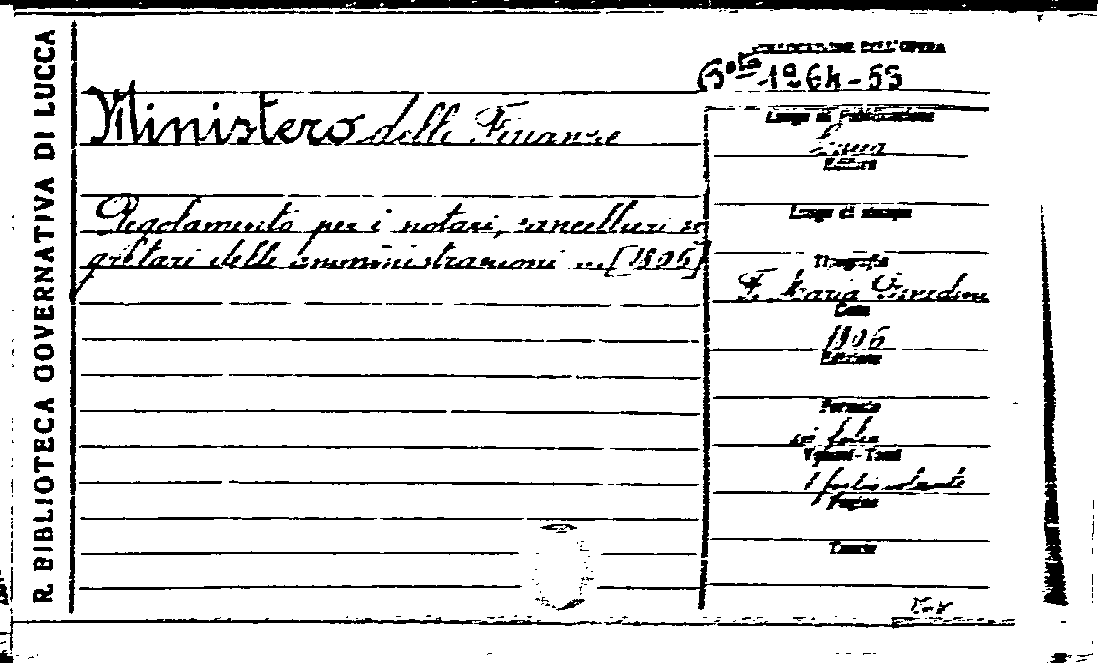 R. BIBLIOTECA GOVERNATIVA DI LUCCA
COLLOCAZIONE DELL'OPERA
Bᵃ 1264-53
Ministero delle Finanze
Regolamento per i notari, cancellieri se
gretari delle amministrazioni ... [1806]
Luogo di Pubblicazione
Lucca
Editore
Luogo di stampa
Tipografia
F. Maria
Data
1806
Edizione
Formato
in folio
Volumi-Tomi
1 foglio volante
Pagine
Tavole